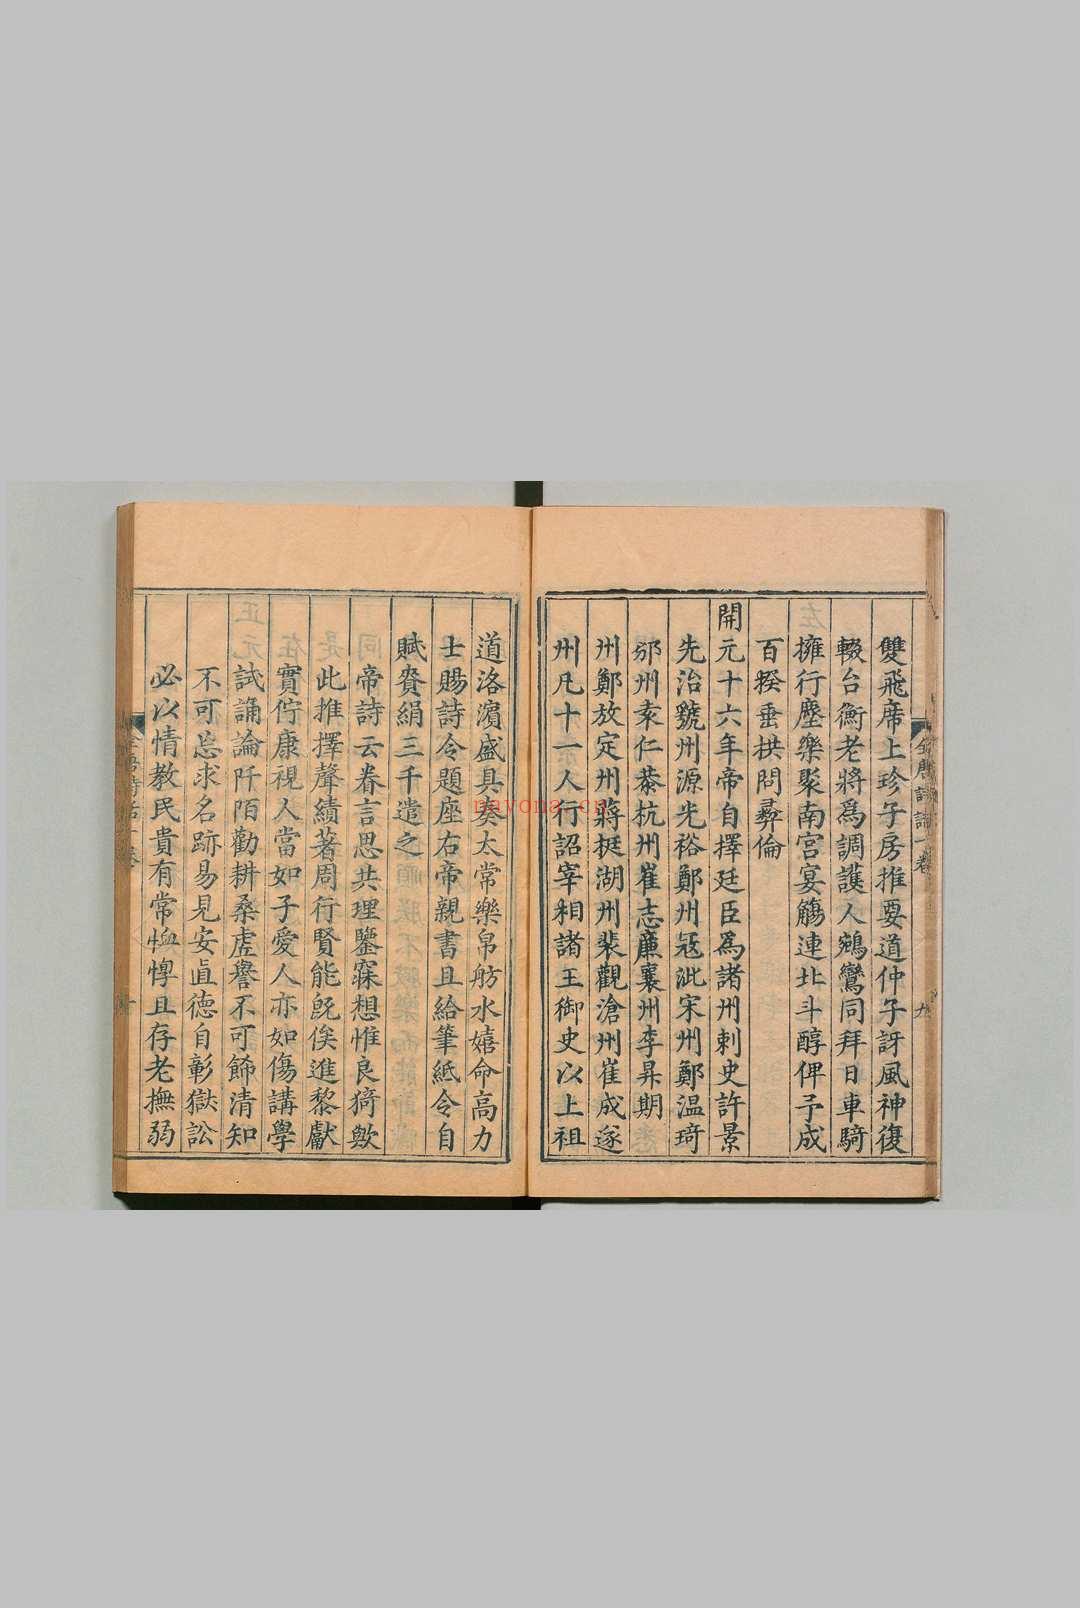 雙飛席上珍子房推要道仲子訝風神復
輟台衡老將爲調護人鵷鸞同拜日車騎
擁行塵樂聚南宮宴觴連北斗醇俾予成
百揆垂拱問彝倫
開元十六年帝自擇廷臣爲諸州刺史許景
先治虢州源光裕鄭州冦泚宋州鄭温琦
邠州袁仁恭杭州崔志廉襄州李昇期
州鄭放定州蔣挺湖州裴觀滄州崔成遂
州凡十一人行詔宰相諸王御史以上祖
道洛濱盛具奏太常樂帛舫水嬉命高力
士賜詩令題座右帝親書且給筆紙令自
賦賚絹三千遣之
帝詩云眷言思共理鑒寐想惟良猗歟
此推擇聲績著周行賢能旣俟進黎獻
實佇康視人當如子愛人亦如傷講學
試誦論阡陌勸耕桑虛譽不可飾清知
不可忘求名跡易見安貞德自彰獄訟
必以情教民貴有常恤惸且存老撫弱
全唐詩話一卷
九
nayona.cn